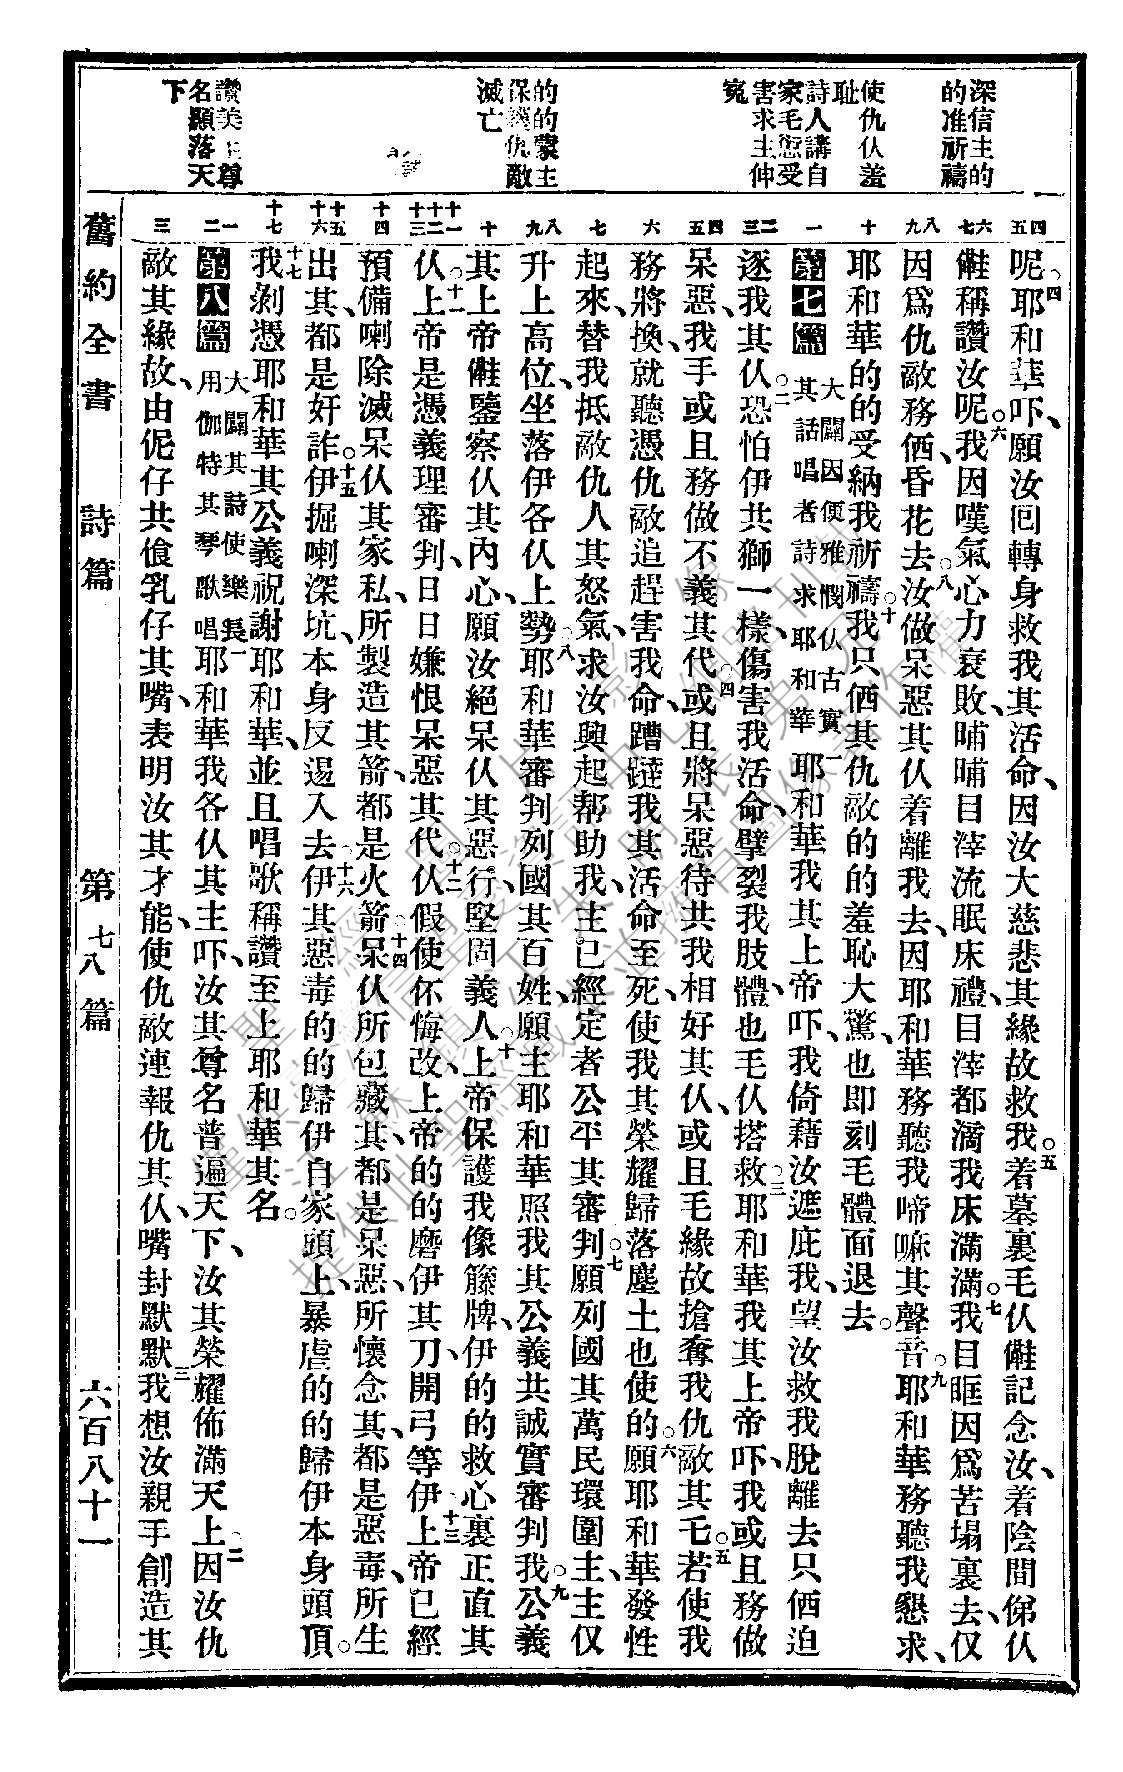 深信主的
的准祈禱
使仇仫羞
耻
詩人講自
家毛愆受
害求主伸
冤
的的蒙主
保護仇敵
滅亡
讚美主尊
名顯落天
下
四 五
六 七
八 九
十
一
二 三
四 五
六
七
八 九
十
十一 十二 十三
十四
十五 十六
十七
一 二
三
呢○四耶和華吓、願汝囘轉身救我其活命、因汝大慈悲其緣故救我○五着墓裏毛仫﨡記念汝、着陰間俤仫
﨡稱讚汝呢○六我因嘆氣心力衰敗、晡晡目滓流眠床禮、目滓都滴我床滿滿○七我目眶因爲苦塌裏去、仅
因爲仇敵務価、昏花去○八汝做呆惡其仫着離我去、因耶和華務聽我啼嘛其聲音○九耶和華務聽我懇求、
耶和華的的受納我祈禱○十我只価其仇敵的的羞恥大驚、也卽刻毛體面退去。
第七篇 大闢因便雅憫仫古實其話唱者詩求耶和華 一耶和華我其上帝吓、我倚藉汝遮庇我、望汝救我脫離去只価迫
逐我其仫○二恐怕伊共獅一樣、傷害我活命、擘裂我肢體、也毛仫搭救○三耶和華我其上帝吓、我或且務做
呆惡、我手或且務做不義其代○四或且將呆惡待共我相好其仫、或且毛緣故搶奪我仇敵其乇○五若使我
務將換、就聽憑仇敵追趕害我命、蹧躂我其活命至死、使我其榮耀歸落塵土也使的○六願耶和華發性
起來、替我抵敵仇人其怒氣、求汝興起帮助我、主已經定者公平其審判○七願列國其萬民環圍主、主仅
升上高位、坐落伊各仫上勢○八耶和華審判列國其百姓、願主耶和華照我其公義共誠實審判我○九公義
其上帝﨡鑒察仫其內心、願汝絕呆仫其惡行、堅固義人○十上帝保護我像籐牌、伊的的救心裏正直其
仫○十一上帝是憑義理審判、日日嫌恨呆惡其代○十二仫假使伓悔改、上帝的的磨伊其刀、開弓等伊○十三上帝已經
預備喇除滅呆仫其家私、所製造其箭、都是火箭○十四呆仫所包藏其、都是呆惡、所懷念其、都是惡毒、所生
出其、都是奸詐○十五伊掘喇深坑、本身反退入去○十六伊其惡毒的的歸伊自家頭上、暴虐的的歸伊本身頭頂○
十七我剝憑耶和華其公義祝謝耶和華、並且唱歌稱讚至上耶和華其名。
第八篇 大闢其詩使樂長用伽特其琴歌唱 一耶和華我各仫其主吓、汝其尊名普遍天下、汝其榮耀佈滿天上○二因汝仇
敵其緣故、由伲仔共食乳仔其嘴、表明汝其才能、使仇敵連報仇其仫、嘴封默默○三我想汝親手創造其
舊約全書 詩篇 第七八篇 六百八十一